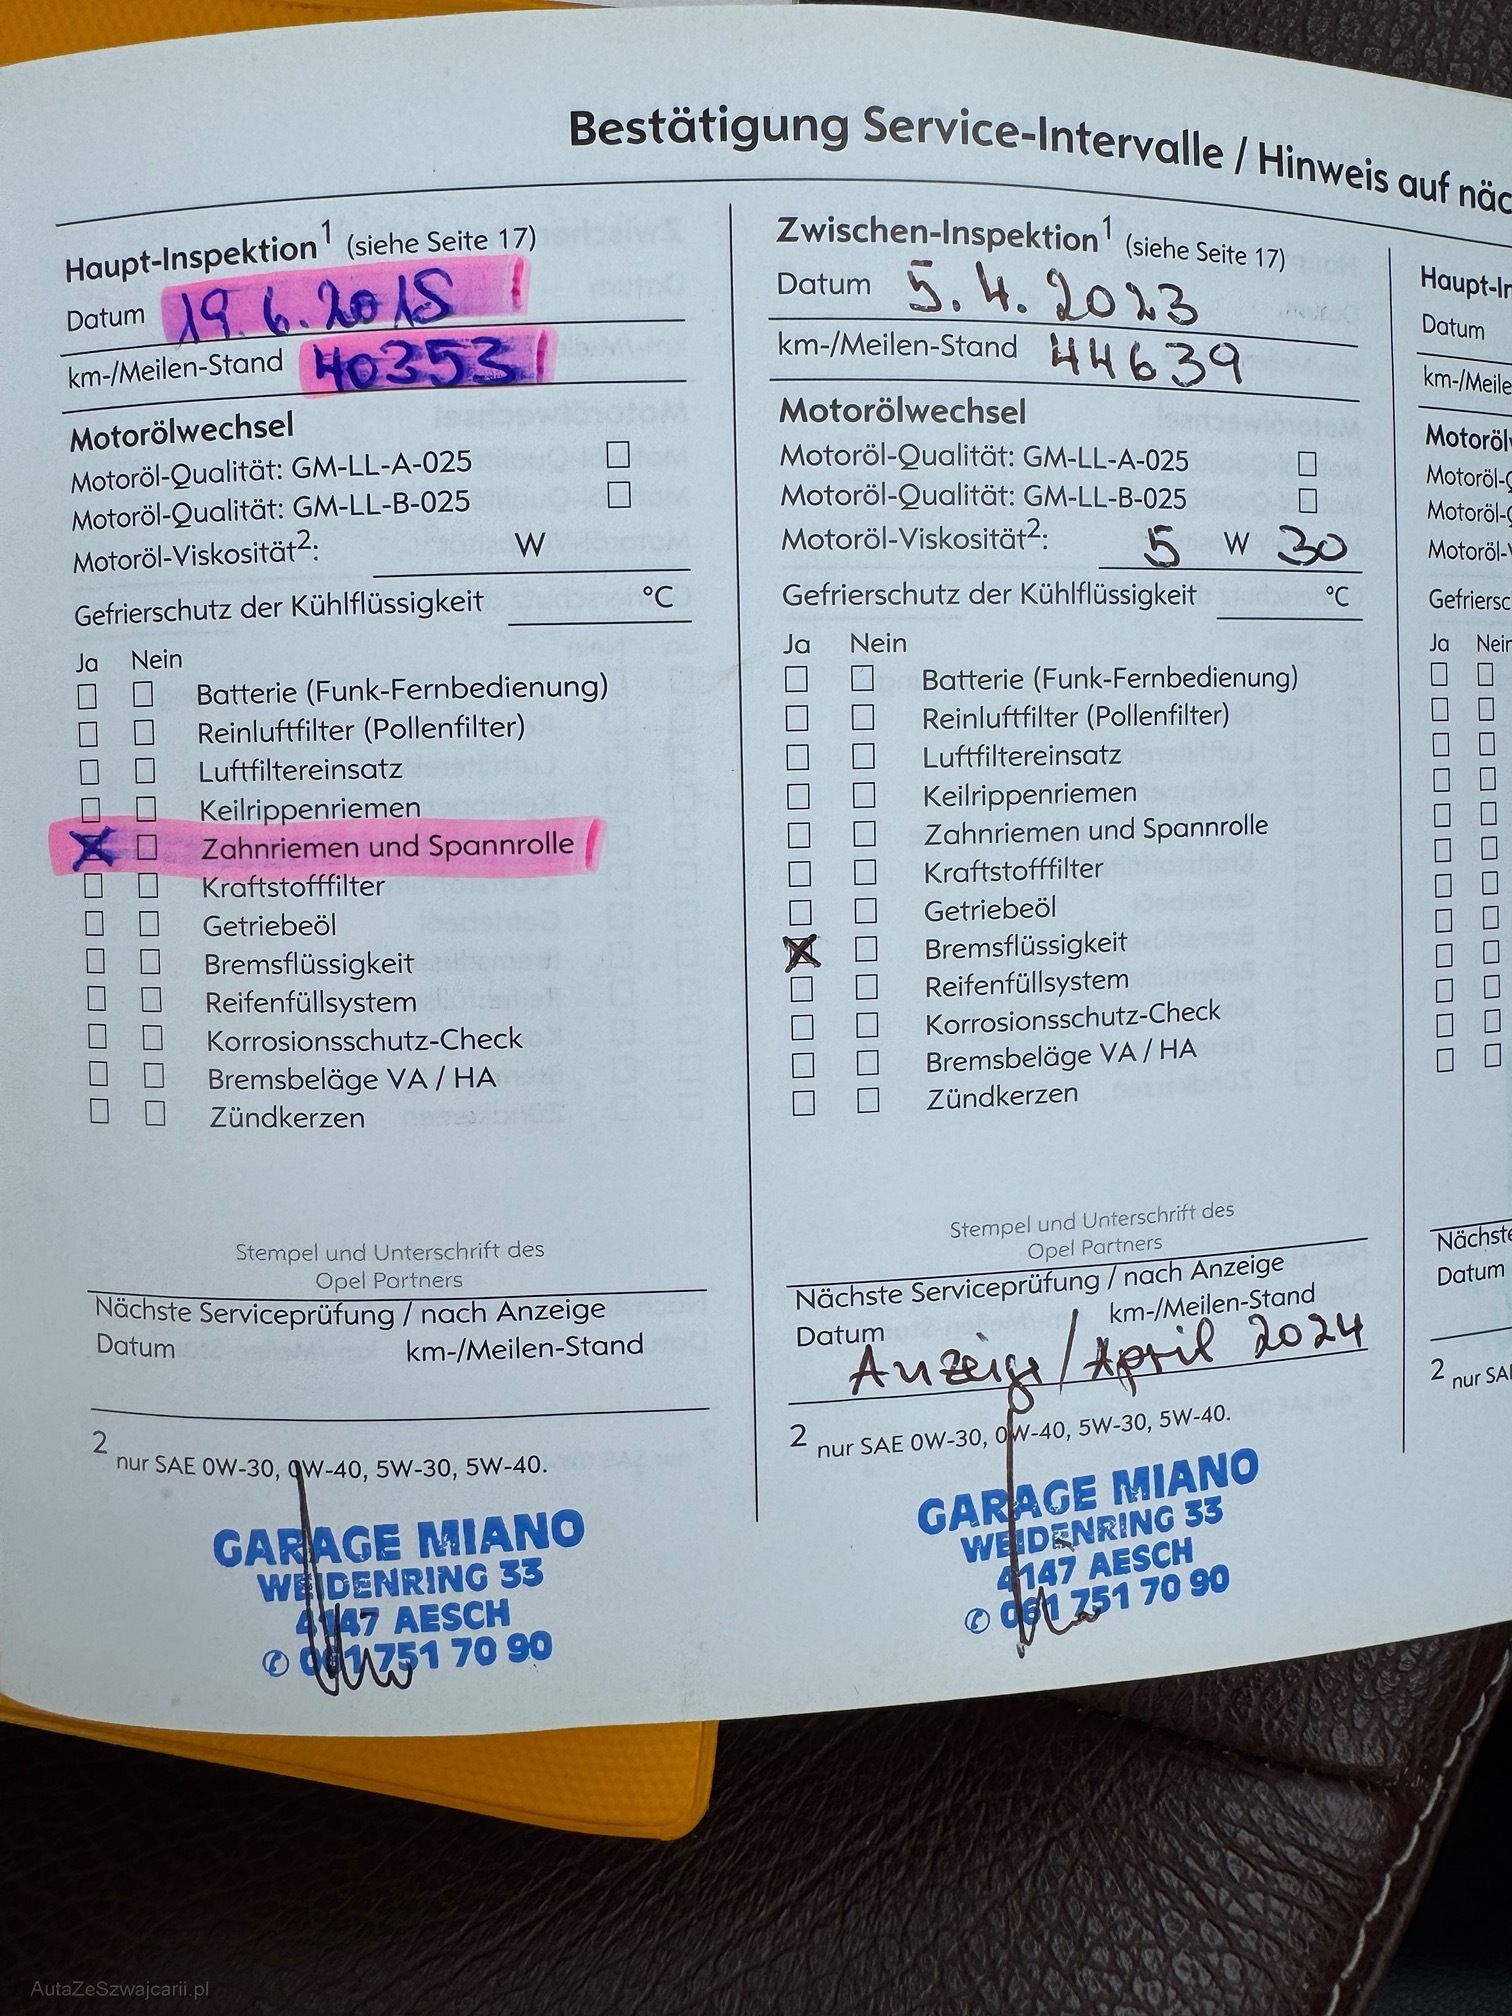 Bestätigung Service-Intervalle / Hinweis auf näc
Haupt-Inspektion¹ (siehe Seite 17)
Datum 19.6.2018
km-/Meilen-Stand 40353
Motorölwechsel
Motoröl-Qualität: GM-LL-A-025
Motoröl-Qualität: GM-LL-B-025
Motoröl-Viskosität²: W
Gefrierschutz der Kühlflüssigkeit °C
Ja Nein
Batterie (Funk-Fernbedienung)
Reinluftfilter (Pollenfilter)
Luftfiltereinsatz
Keilrippenriemen
Zahnriemen und Spannrolle
Kraftstofffilter
Getriebeöl
Bremsflüssigkeit
Reifenfüllsystem
Korrosionsschutz-Check
Bremsbeläge VA / HA
Zündkerzen
Stempel und Unterschrift des
Opel Partners
Nächste Serviceprüfung / nach Anzeige
Datum km-/Meilen-Stand
2 nur SAE 0W-30, 0W-40, 5W-30, 5W-40.
GARAGE MIANO
WEIDENRING 33
4147 AESCH
✆ 061 751 70 90
Zwischen-Inspektion¹ (siehe Seite 17)
Datum 5.4.2023
km-/Meilen-Stand 44639
Motorölwechsel
Motoröl-Qualität: GM-LL-A-025
Motoröl-Qualität: GM-LL-B-025
Motoröl-Viskosität²: 5 W 30
Gefrierschutz der Kühlflüssigkeit °C
Ja Nein
Batterie (Funk-Fernbedienung)
Reinluftfilter (Pollenfilter)
Luftfiltereinsatz
Keilrippenriemen
Zahnriemen und Spannrolle
Kraftstofffilter
Getriebeöl
Bremsflüssigkeit
Reifenfüllsystem
Korrosionsschutz-Check
Bremsbeläge VA / HA
Zündkerzen
Stempel und Unterschrift des
Opel Partners
Nächste Serviceprüfung / nach Anzeige
Datum km-/Meilen-Stand
Anzeige / April 2024
2 nur SAE 0W-30, 0W-40, 5W-30, 5W-40.
GARAGE MIANO
WEIDENRING 33
4147 AESCH
✆ 061 751 70 90
Haupt-In
Datum
km-/Meile
Motoröl
Motoröl-Q
Motoröl-Q
Motoröl-V
Gefriersc
Ja Nein
Nächste
Datum
2 nur SA
AutaZeSzwajcarii.pl